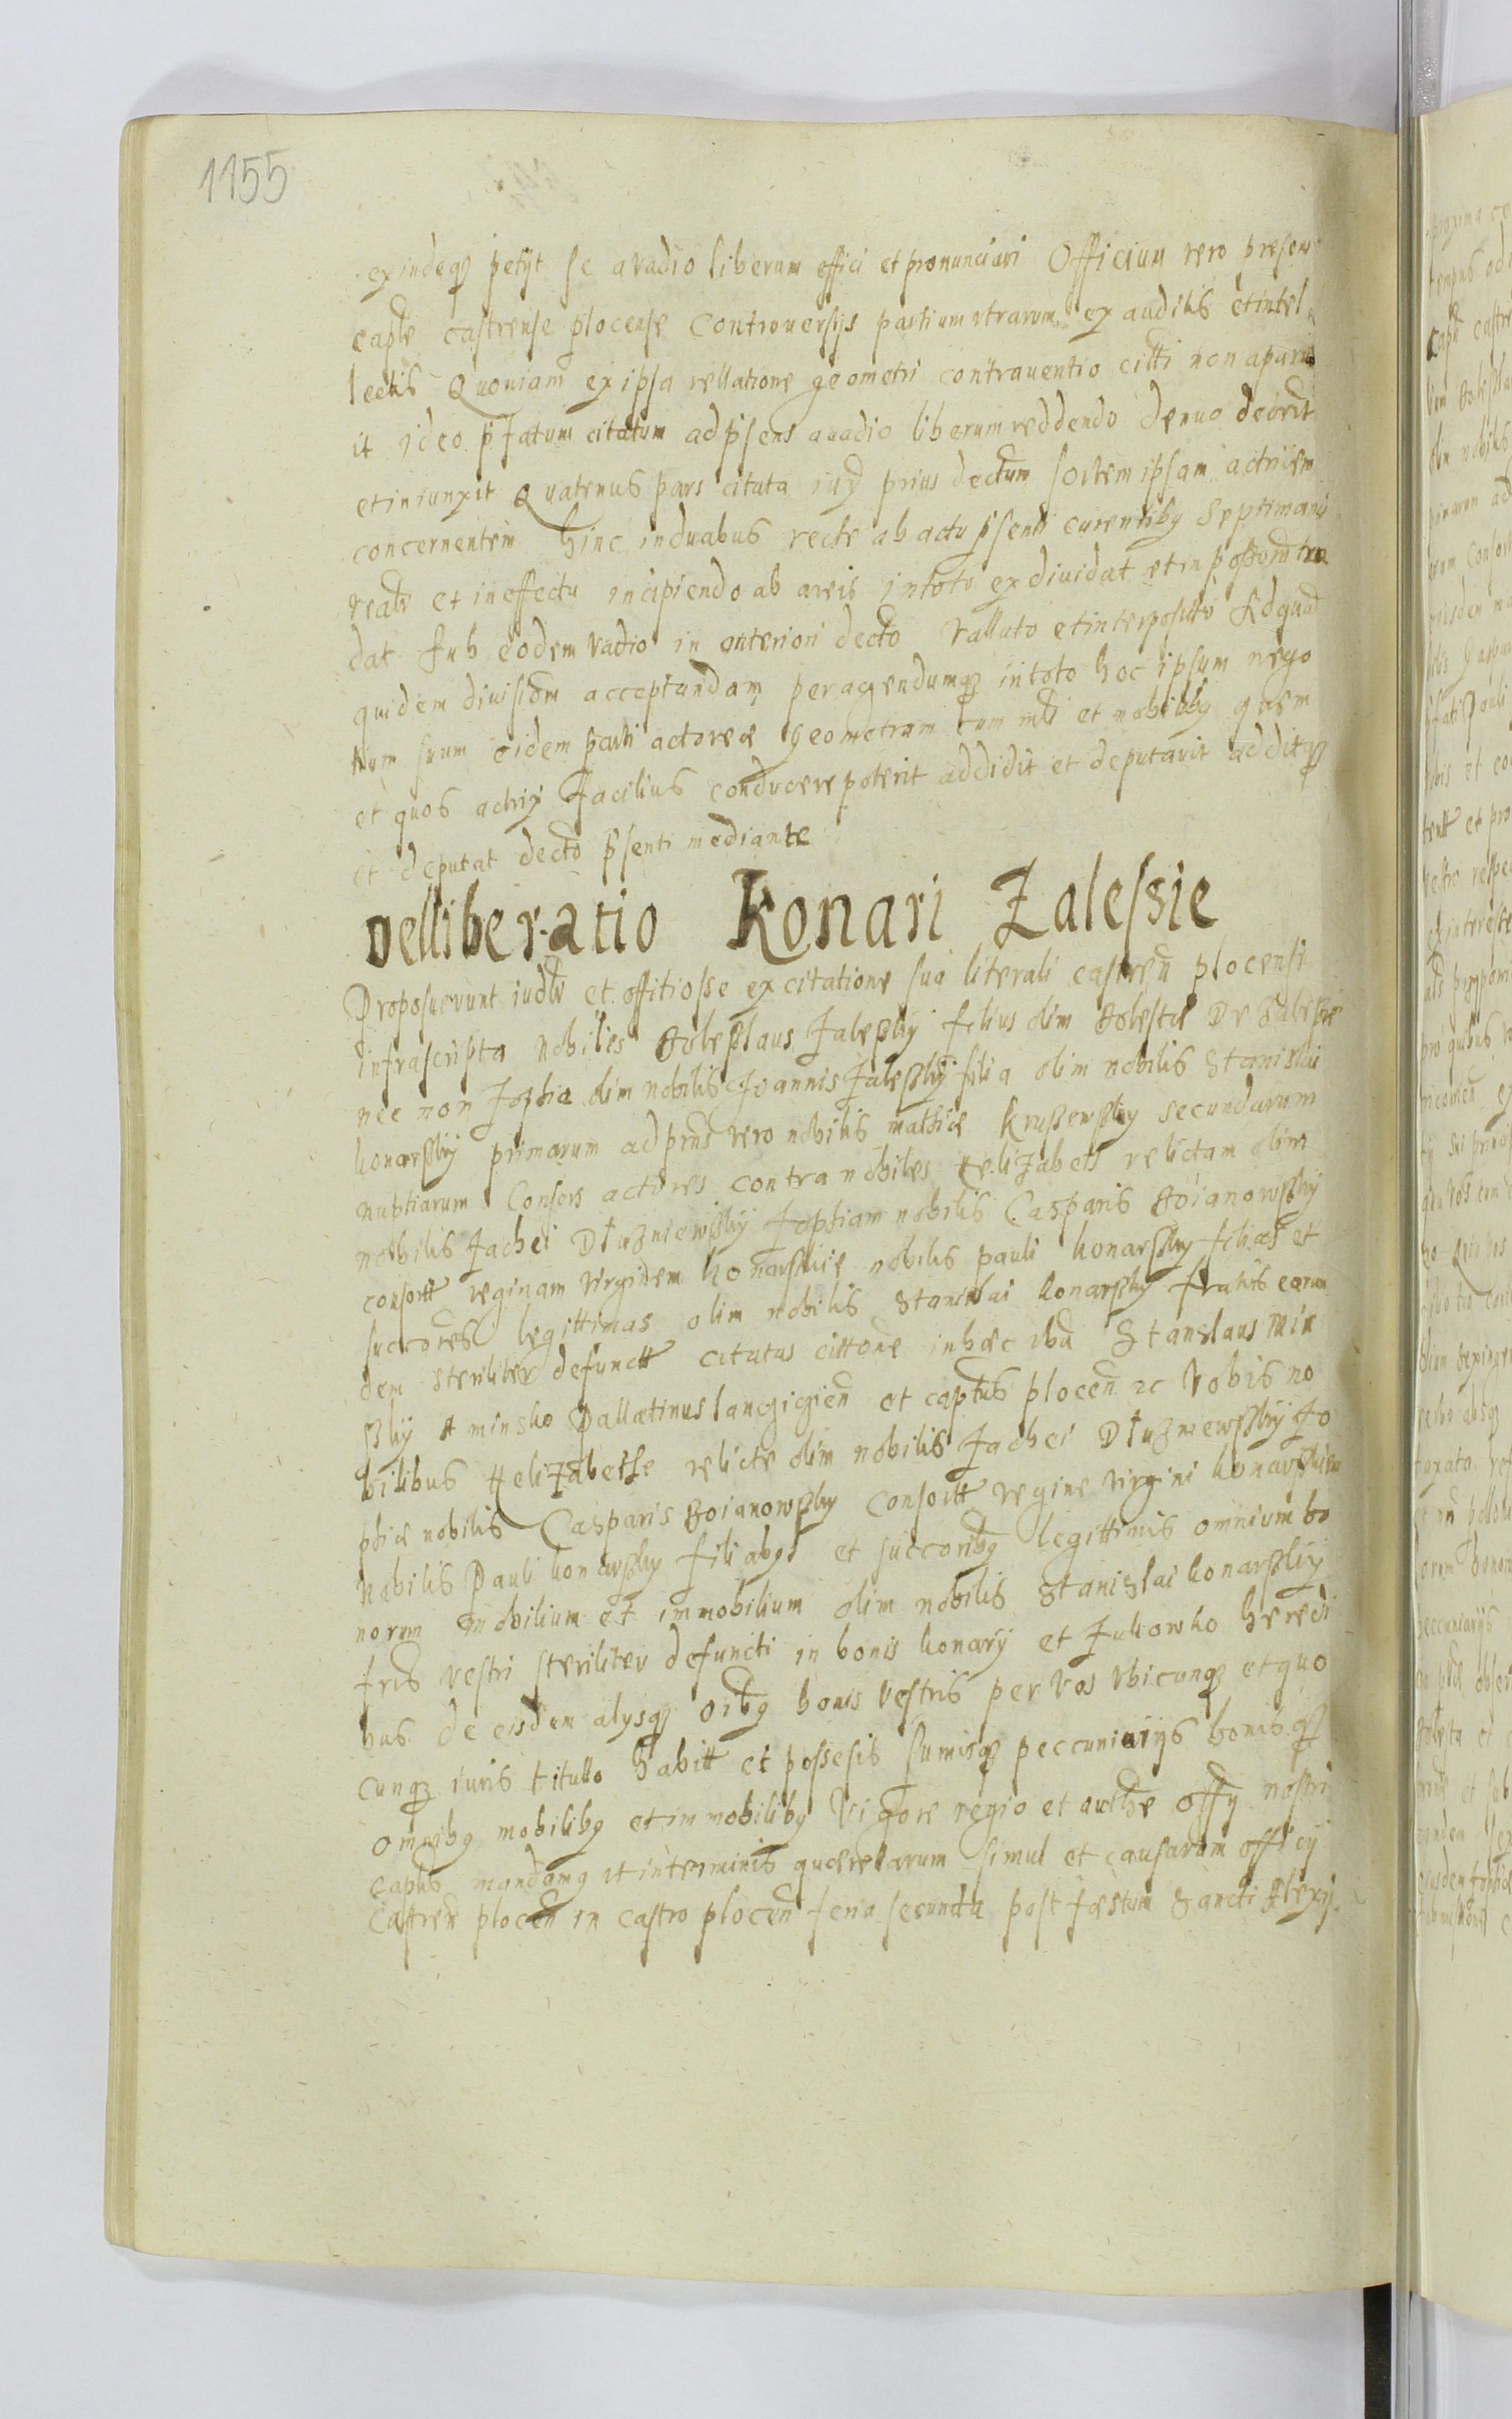 1155
exindeqз petyt se a vadio liberum effici et pronunciari Officium vero presens
caple castrense plocense Controversijs partium utrarum ex auditis et intel
lectis Quoniam ex ipsa rellatione geometri contraventio citti non aparu
it ideo pfatum citatum ad psens avadio liberum reddendo denuo decrevit
et iniunxit Quatenus pars citata iuxt prius dectum sortem ipsam actricem
concernentem hinc in duabus recte ab actu psenti curentiby Septimanis
realr et in effectu incipiendo ab areis in toto exdividat et in possom tra
dat sub eodem vadio in anteriori decto vallato et interposito Ad quam
quidem divisiom acceptandam peragendumqз in toto hoc ipsum nego
tium suum eidem parti actoreæ Geometram cum mli et nobiliby quem
et quos actrix facilius conducere poterit addidit et deputavit additqз
et deputat decto psenti mediante
Delliberatio Konari Zalessie
Proposuerunt iudlr et offitiosse ex citatione sua literali castren plocensi
infrascripta nobiles Boleslaus Zalesky filius olim Bolestæ De Zalessie
nec non Zophia olim nobilis Joannis Zalesky filia olim nobilis Stanislai
konarsky primarum ad prns vero nobilis mathiæ Krussewsky secundarum
nuptiarum Consors actores contra nobiles Helizabeth relictam olim
nobilis Zachei Dłuzniewsky Zophiam nobilis Casparis Boianowsky
consortt reginam virginem konarskie nobilis pauli konarsky filias et
succores legittimas olim nobilis Stanislai konarsky fratris earun
dem steriliter defunctt citatus cittone in hæc vba Stanslaus Min
sky A minsko Pallatinus lancgicien et captus plocen 2c Vobis no
bilibus Helizabethe relicte olim nobilis Zachei Dłuzniewsky Zo
phiæ nobilis Casparis Boianowsky Consortt regine virgini konarskim
Nobilis Pauli konarsky filiabyз et succoriby legittimis omnium bo
norum mobilium et immobilium olim nobilis Stanislai konarsky
fris vestri steriliter defuncti in bonis konary et Zukowko heredi
bus de eisdem alysqз oiby bonis vestris per vos ubicunqз et quo
cunqз iuris titullo habitt et possesis sumisqз peccuniarijs bonisqз
omniby mobiliby et immobiliby Vigore regio et aucthe offy nostri
caplis mandamy ut in terminis quærelarum simul et causarum officij
Castren plocen in castro plocen feria secunda post fæstum Sancti Alexy